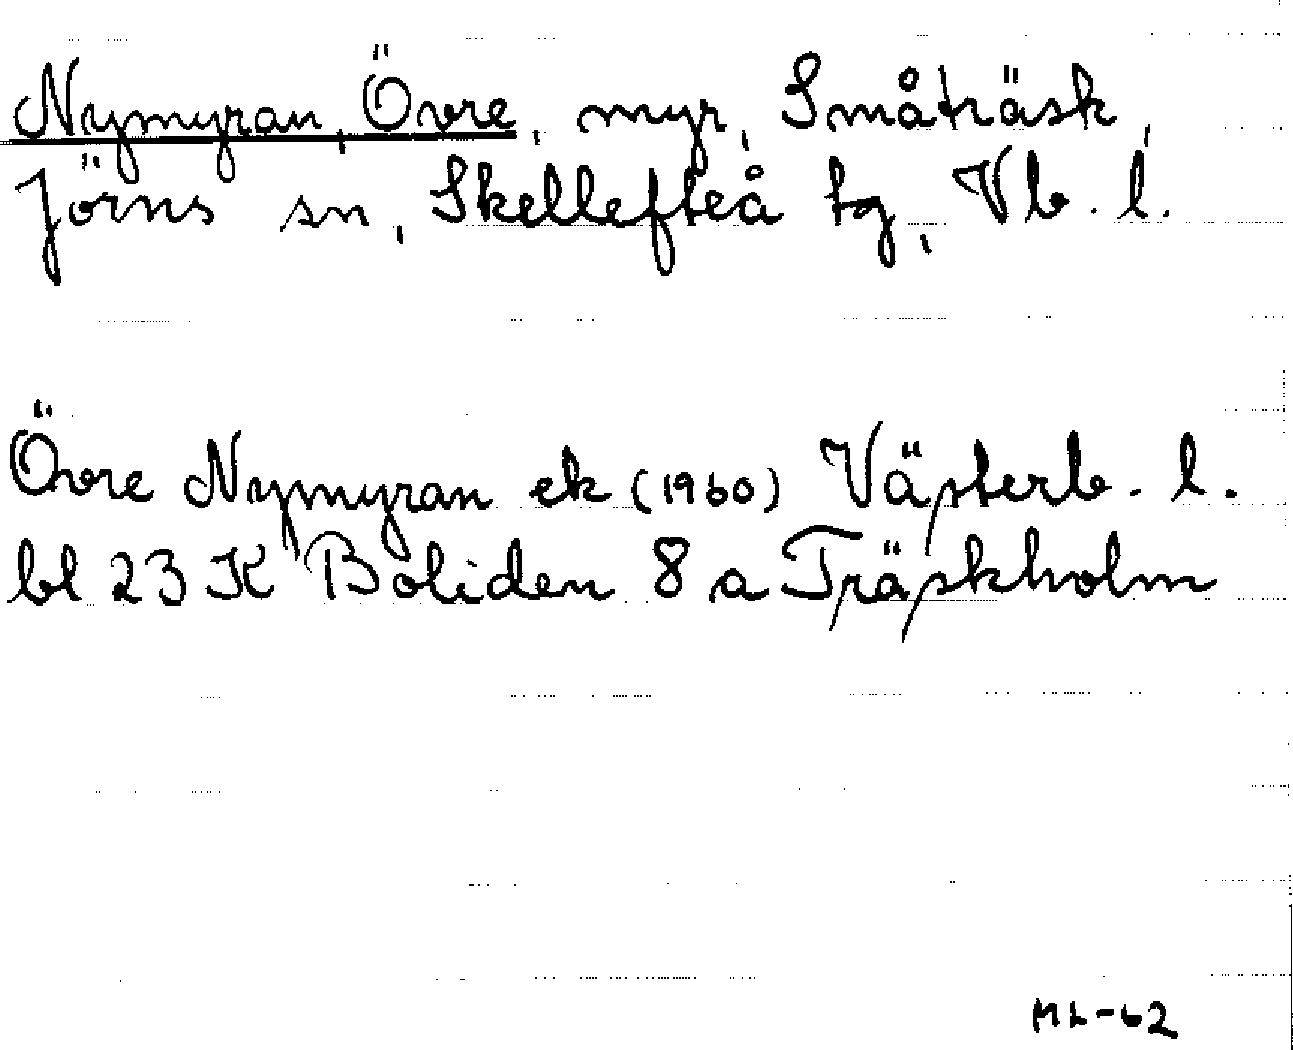 Nymyran, Övre, myr, Småträsk,
Jörns sn, Skellefteå tg, Vb. l.
Övre Nymyran ek (1960) Västerb. l.
bl 23 K Boliden 8 a Träskholm
ML-62